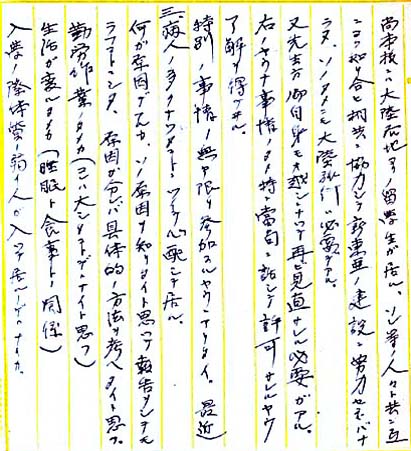 尚本校ニ大陸各地ヨリ留学生が居ル。ソレ等ノ人々ト共ニ互
ニヨク知リ合ヒ相共ニ協力シテ新東亜ノ建設ニ努力セネバナ
ラヌ、ソノタメニモ大陸旅行ハ必要デアル。
又先生方御自身モオ越シニナツテ再ビ見直サレル必要ガアル。
右ノヤウナ事情ノタメ特ニ当局ニ話シテ許可サレルヤウ
了解ヲ得テヰル。
特別ノ事情ノ無イ限リ参加スルヤウニサレタイ。最近
三、病人ノ多クナツタコトニツイテ心配シテ居ル。
何が原因デスカ、ソノ原因ヲ知リタイト思ツテ報告サシテモ
ラフコトニシタ、原因が分レバ具体的ノ方法ヲ考ヘタイト思フ。
勤労作業ノタメカ(コレハ大シタコトデナイト思フ)
生活が変ルタメカ(睡眠ト食事トノ関係)
入学ノ際体質ノ弱イ人が入ツテ居ルノデハナイカ。